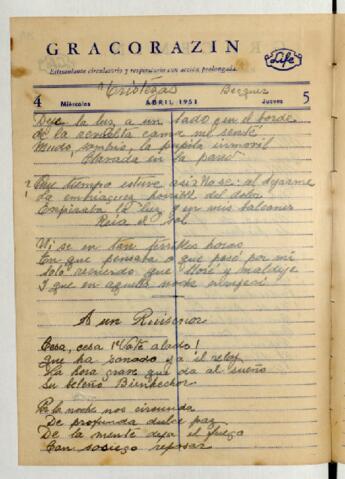 GRACORAZIN
Life
Estimulante circulatorio y respiratorio con acción prolongada.
"Tristezas" Becquer
4 Miércoles ABRIL 1951 Jueves 5
Deje la luz a un lado y en el borde
de la revuelta cama me senté
Mudo, sombrio, la pupila inmovil
Clavada en la pared
Que tiempo estuve asi? No se: al dejarme
la embriaguez horrible del dolor
Expiraba la luz y en mis balcones
Reia el sol
Ni se en tan terribles horas
En que pensaba o que pasó por mi
Solo recuerdo que lloré y maldije
I que en aquella noche envejeci
A un Ruiseñor
Cesa, cesa! Vate alado!
Que ha sonado ya el reloj
La hora grave que da al sueño
Su beleño Bienhechor
Por la noche nos circunda
De profunda dulce paz
De la mente deja el fuego
Con sosiego reposar